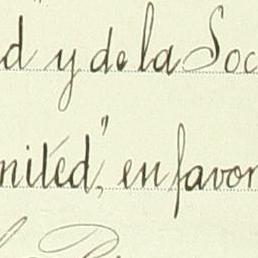 d y de la Soc
nited", en favor